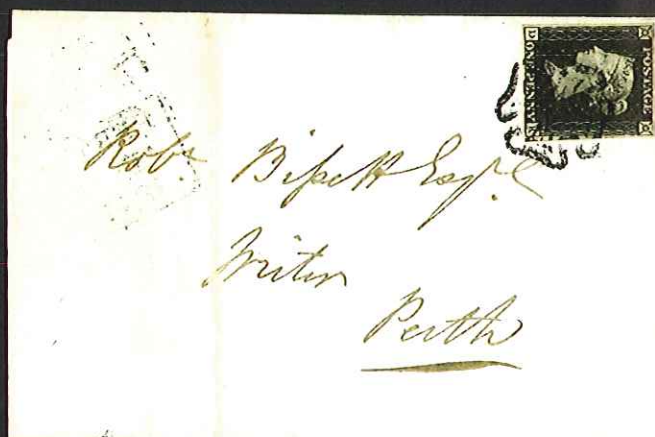 POSTAGE
ONE PENNY
Robt Bissett Esqre
Writer
Perth